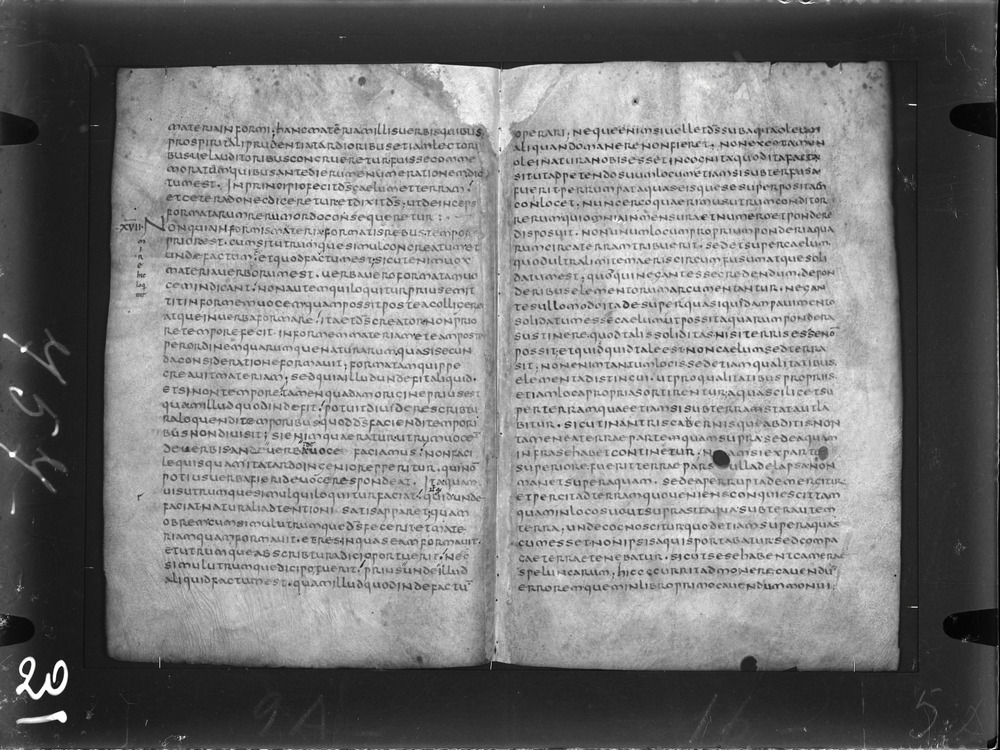 materiainformi; hancmateriamillisuerbisquibus
prospiritaliprudentiatardioribusetiamlectori
busuelauditoribuscongrueretur fuissecomme
moratamquibusantedierumenumerationemdic
tumest. Inprincipiofecitdscaelumetterram;
etceteradonecdiceretur etdixitds; utdeinceps
formatarumrerumordoconsequeretur;
XVII Nonquiainformismateriaformatisrebustempore
priorest. cumsitutrumquesimulconcreatumet
undefactum etquodfactumest; sicutenimuox
materiauerborumest. uerbaueroformatamuo
cemindicant; nonautemquiloquiturpriusemit
titinformemuocemquampossitposteacolligere
atqueinuerbaformare; itaetdscreatornonprio
retemporefecit informemmateriam eteamposte
perordinemquarumquenaturarumquasisecun
daconsiderationeformauit; formatamquippe
creauitmateriam; sedquiailludundefitaliquid.
etsinontempore tamenquadamorigineprius est
quamilludquodindefit; potuitdiuiderescribtu
raloquenditemporibus quoddsfaciendi tempori
busnondiuisit;
deuerbisan uoce faciamus; nonfaci
lequisquamitatardoingenioreppериtur. quinon
potiusuerbafieridevocerespondeat. Itaquam
uisutrumquesimulquiloquiturfaciat; quidunde
faciatnaturaliadtentioni satisapparet quam
obremcumsimulutrumquedsfeceritetmate
riamquamformauit. etresinquaseamformauit.
etutrumqueabscribturadicioportuerit. nec
simulutrumquedicipotuerit; priusundeillud
aliquidfactumest. quamilludquodindefactu
operari; nequeenimsiuelletdssubaquaoleum
aliquandomanerenonfieret. nonexeotamen
oleinaturanobisessetincognitaquoditafacta
situtappetendosuumlocumetiamsisubterfusa
fueritperrumpataquaseisquesesuperpositam
conlocet. nuncergoquaerimusutrumconditor
rerumquiomniainmensuraetnumeroetpondere
disposuit. nonunumlocumproprium ponderiaqua
rumcircaterramtribuerit. sedetsupercaelum
quodultralimitemaeriscircumfusumatquesoli
datumest; quodquineganteessecredendum. depon
deribuselementorumarcumentantur. negan
tesullomodoitadesuperquasiquodampauimento
solidatumessecaelumutpossitaquarumpondera
sustinere quodtalissoliditasnisiterrisesse non
possit; etquidquidtaleestnoncaelumsedterra
sit; nonenimtantumlocissedetiamqualitatibus
elementadistincui. utproqualitatibuspropriis.
etiamlocapropriasortirentur; aquascilicetsu
perterramquaeetiamsisubterramstatautla
bitur. sicutinantriscabernisqueabditisnon
tameneaterraeparte quamsuprasedeaquam
infrasehabetcontinetur.
superiorefueritterraepars
manetsuperaquam. sedeaperruptademercitur
etpercitadterramquoueniensconquiescittam
quaminlocosuoutsuprasitaqua subterautem
terra; undecognosciturquodetiamsuperaquas
cumessetnonipsisaquisportabatursedcompa
gaeterraetenebatur. sicutsesehabentcamerae
speluncarum; hiccurritadmonerecauendu
erroremqueminlibroprimocauendummonui;